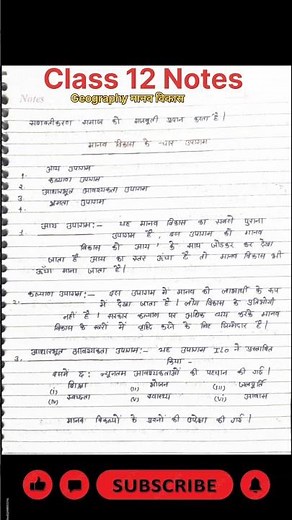 Class 12 Notes
Notes
Geography मानव विकास
सशक्तीकरण समाज को मजबूती प्रदान करता है।
मानव विकास के चार उपागम
1. आय उपागम
2. कल्याण उपागम
3. आधारभूत आवश्यकता उपागम
4. क्षमता उपागम
1. आय उपागम:- यह मानव विकास का सबसे पुराना
उपागम है, इस उपागम को मानव
विकास की आय के साथ जोडकर कर देखा
जाता है आय का स्तर ऊँचा है तो मानव विकास भी
ऊँचा माना जाता है।
2. कल्याण उपागम:- इस उपागम में मानव को लाभार्थी के रूप
में देखा जाता है। लोग विकास के
नहीं है। सरकार कल्याण पर अधिक व्यय करके मानव
विकास के स्तरों में वृद्धि करने के लिए जिम्मेदार है।
3. आधारभूत आवश्यकता उपागम:- यह उपागम ILO ने प्रस्तावित
किया -
इसमें छ: न्यूनतम आवश्यकताओं की पहचान की गई।
(i) शिक्षा (ii) भोजन (iii) जलपूर्ति
(iv) स्वच्छता (v) स्वास्थ्य (vi) आवास
मानव विकल्पों के प्रश्नों की उपेक्षा की गई।
SUBSCRIBE